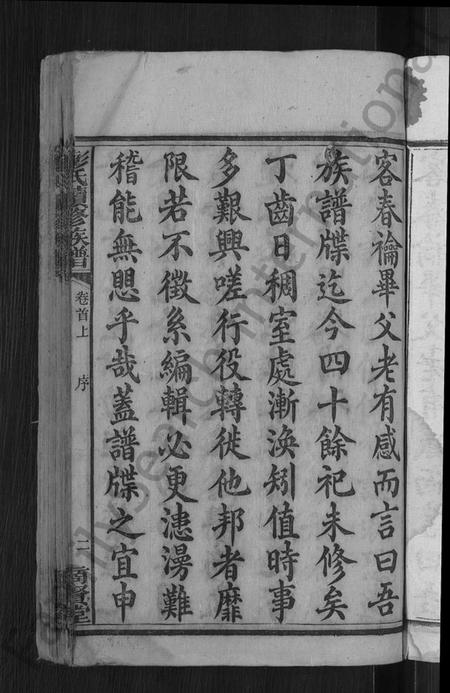 客春禴畢父老有感而言曰吾
族譜牒迄今四十餘祀未修矣
丁齒日稠室處漸渙矧值時事
多艱興嗟行役轉徙他邦者靡
限若不徵系編輯必更漶漫難
稽能無愳乎哉蓋譜牒之宜申
彭氏續修族譜
卷首上
序